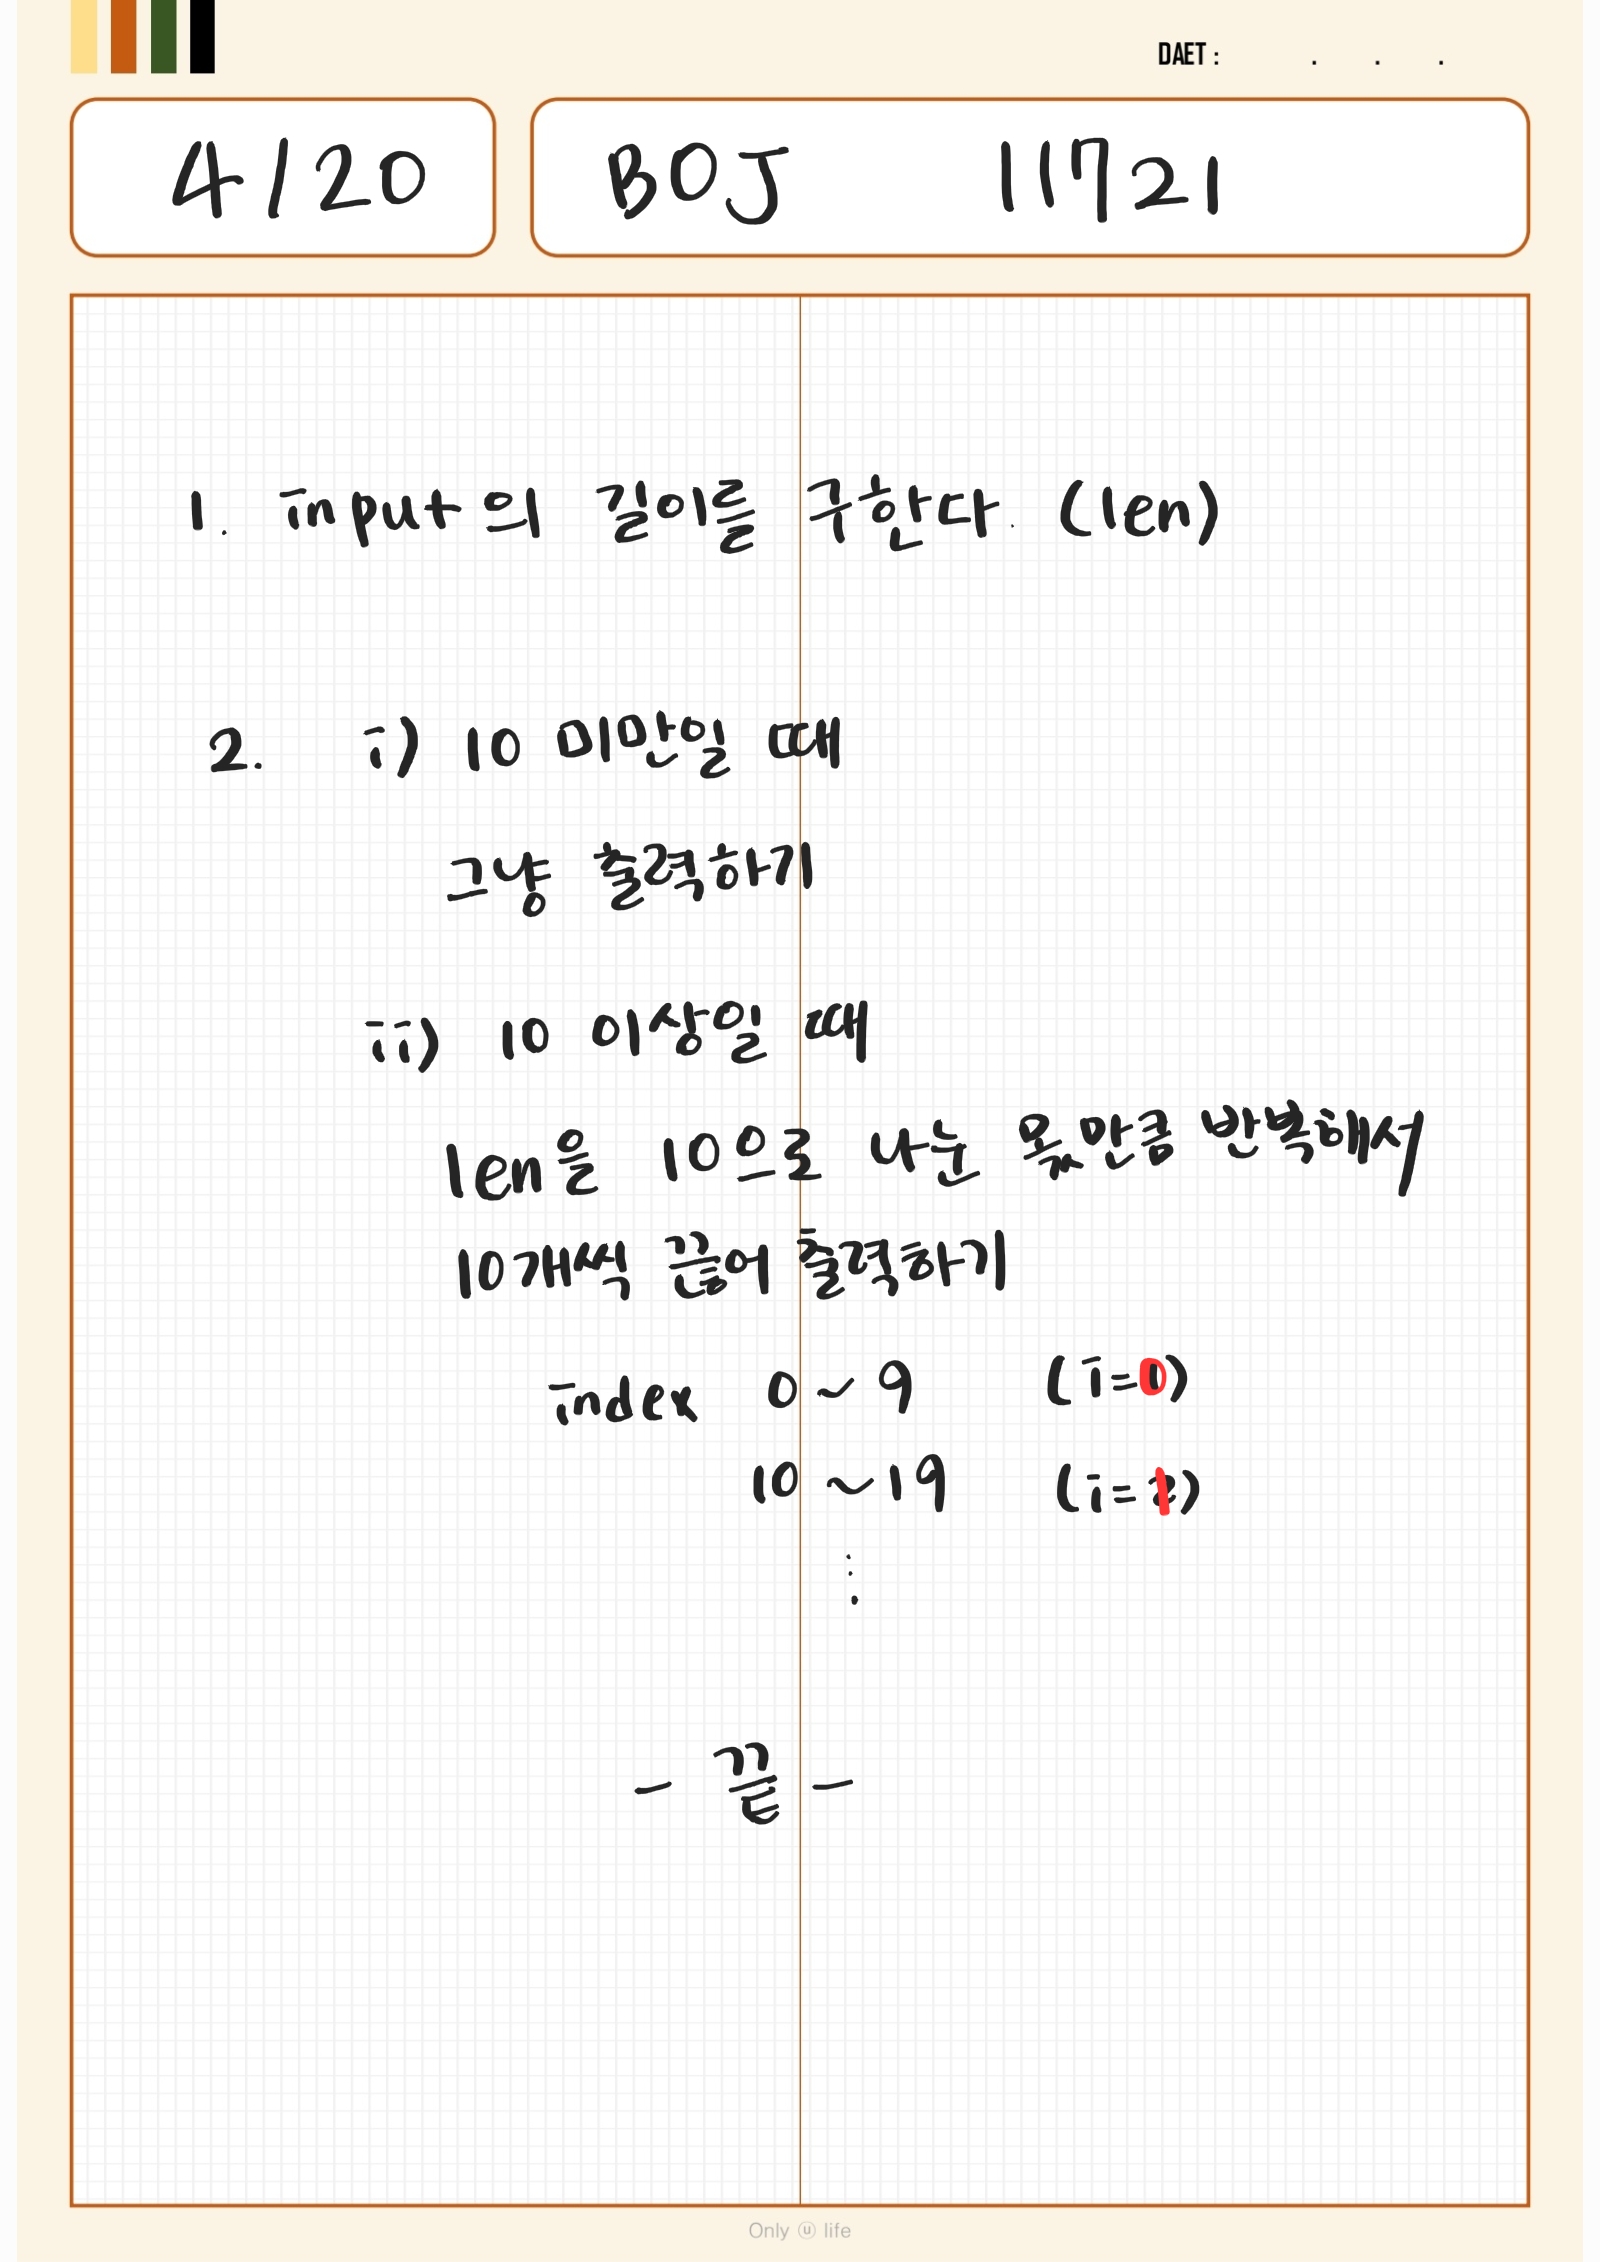 DAET :      .    .    .
4/20
BOJ 11721
1. input의 길이를 구한다. (len)
2. i) 10 미만일 때
그냥 출력하기
ii) 10 이상일 때
len을 10으로 나눈 몫만큼 반복해서
10개씩 끊어 출력하기
index 0 ~ 9 (i=0)
10 ~ 19 (i=1)
⋮
- 끝 -
Only ⓤ life